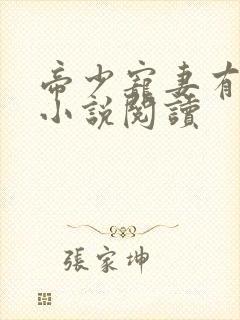 帝少寵妻有
小說閱讀
張家坤